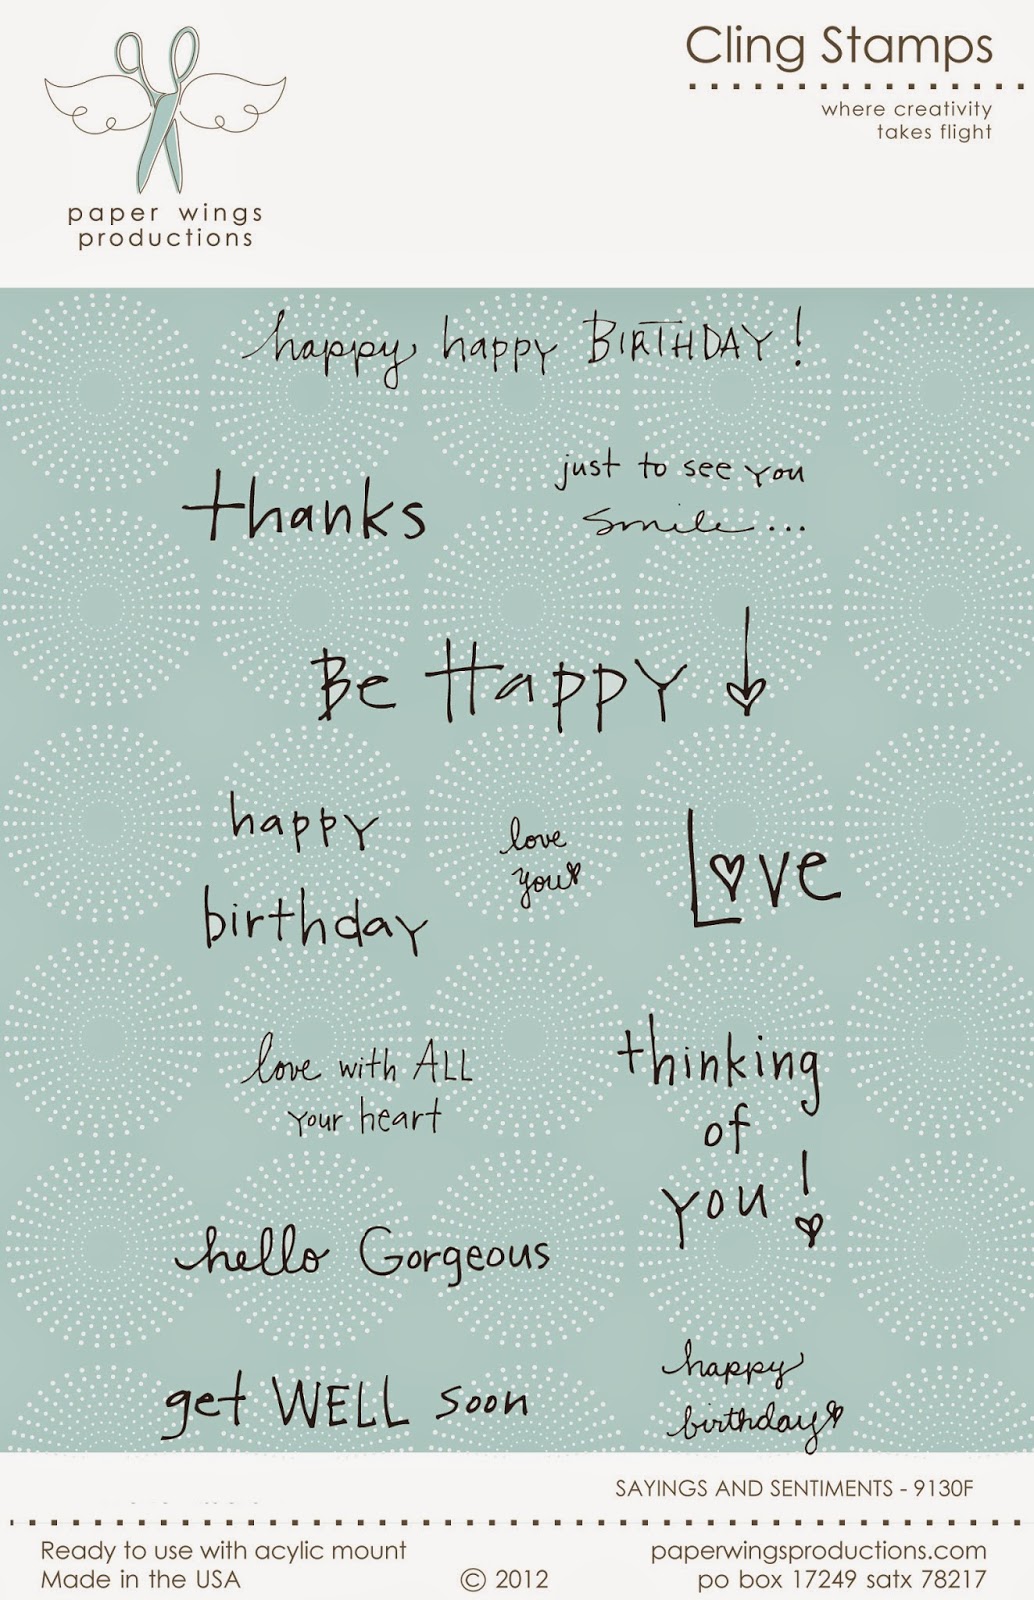 Cling Stamps
where creativity
takes flight
paper wings
productions
happy happy BIRTHDAY!
thanks
just to see you
smile...
Be Happy
happy
birthday
love
you
Love
love with ALL
your heart
thinking
of
you!
hello Gorgeous
get WELL soon
happy
birthday
SAYINGS AND SENTIMENTS - 9130F
Ready to use with acylic mount
Made in the USA
© 2012
paperwingsproductions.com
po box 17249 satx 78217